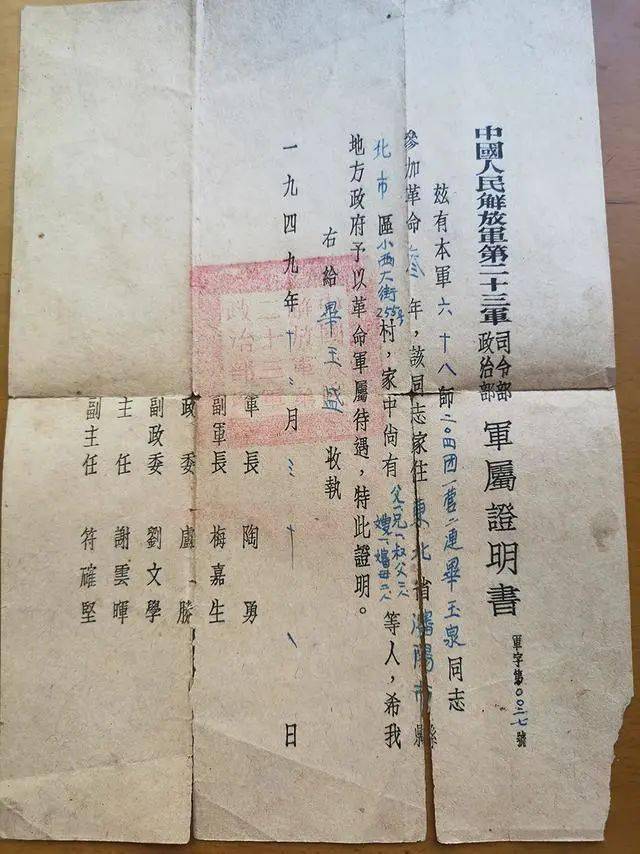 中國人民解放軍第二十三軍司令部政治部 軍屬證明書
軍字第00三七號
茲有本軍六十八師二〇四团一营二連畢玉泉同志
參加革命叁年，該同志家住東北省瀋陽市縣
北市區小西大街255号村，家中尚有父一兄一叔父二人嫂一嬸母二人等人，希我
地方政府予以革命軍屬待遇，特此證明。
右給畢玉盛收執
軍長 陶勇
副軍長 梅嘉生
政委 盧勝
副政委 劉文學
主任 謝雲暉
副主任 符確堅
一九四九年十二月三十一日